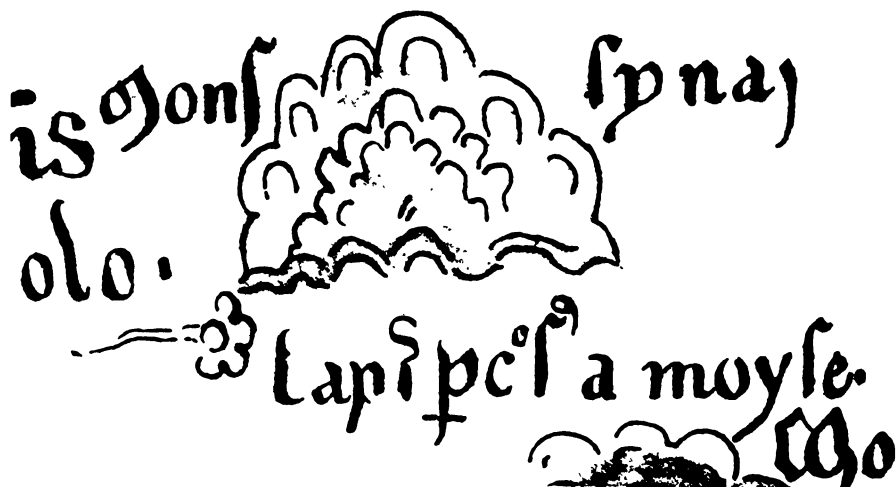 is Mons synay
olo.
lapis pc⁰sꝰ a moyse.
Mo